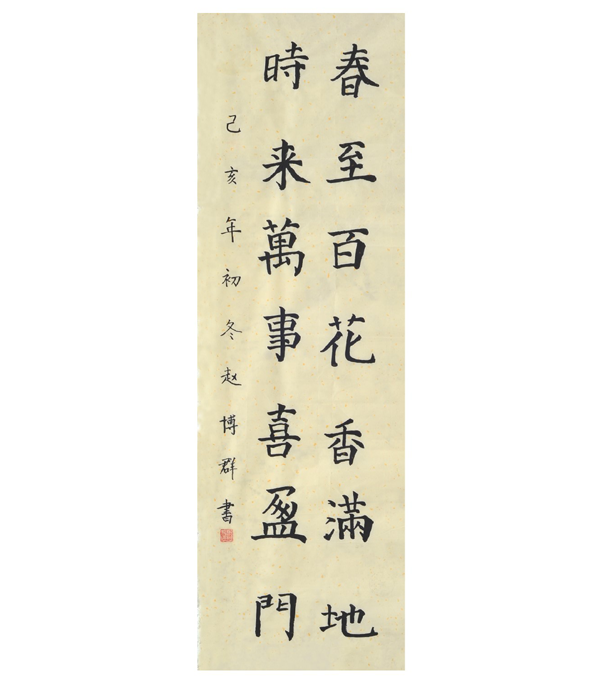 春至百花香滿地
時来萬事喜盈門
己亥年初冬赵博群書